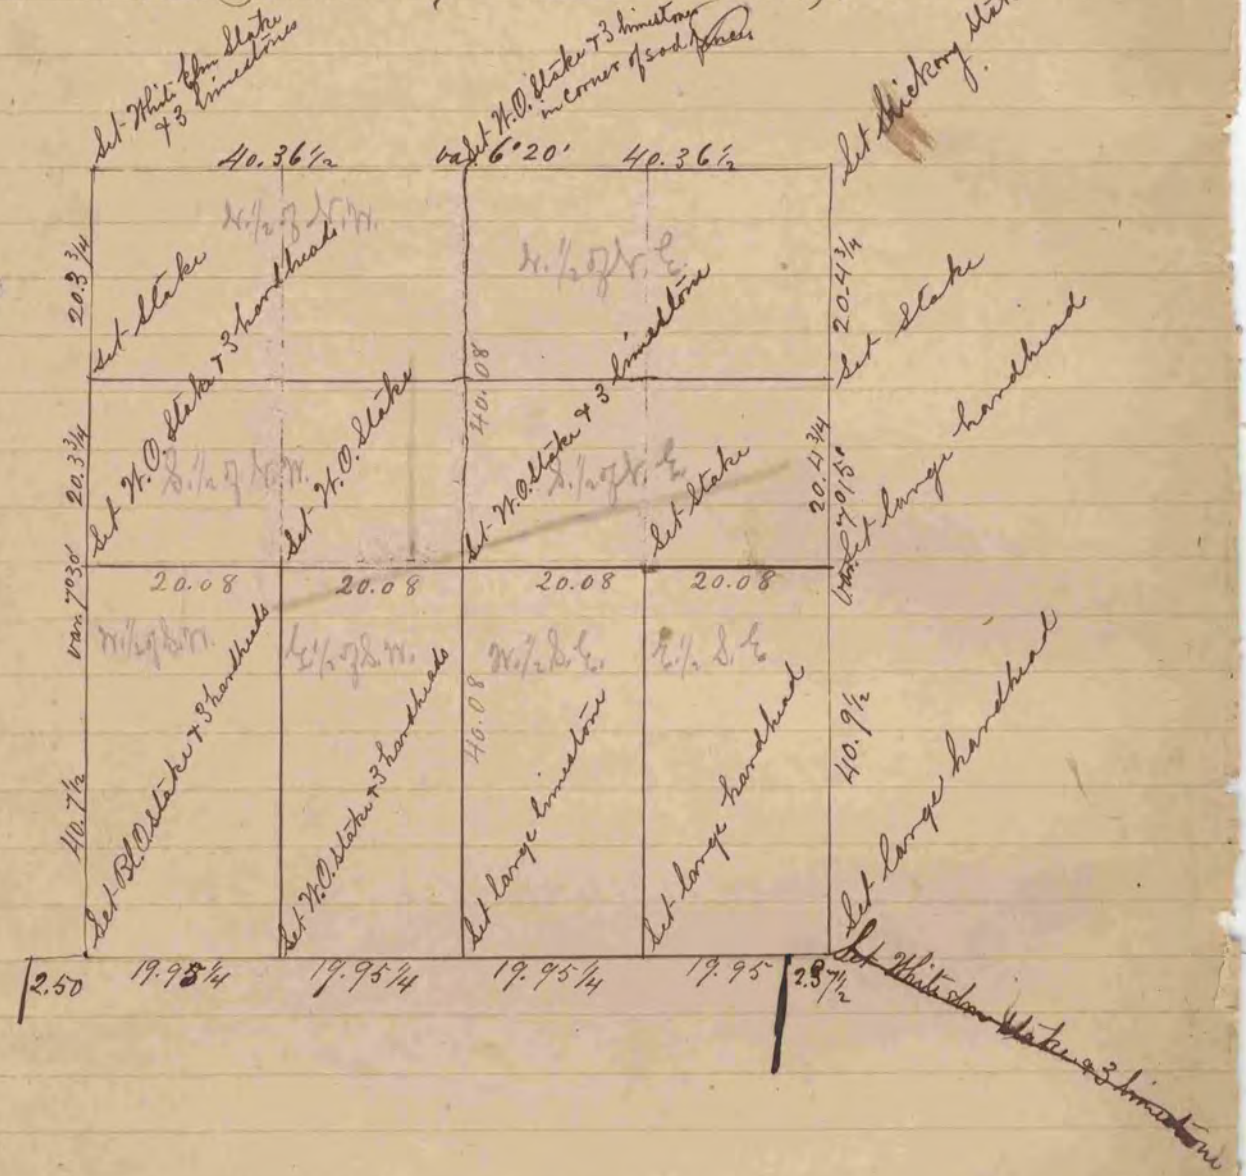 Set White Elm Stake
& 3 limestones
Set W.O. Stake & 3 limestones
in corner of sod fence
Set Hickory
40.36½
var. 6°20'
40.36½
N.½ of N.W.
N.½ of N.E.
20.3¾
20.4¾
Set Stake
Set Stake
40.08
20.3¾
20.4¾
Set W.O. Stake & 3 hardheads
Set W.O. Stake
Set W.O. Stake & 3 limestone
Set Stake
Set large hardhead
S.½ of N.W.
S.½ of N.E.
var. 7°30'
var. 7°15'
20.08
20.08
20.08
20.08
W.½ of S.W.
E.½ of S.W.
W.½ S.E.
E.½ S.E.
40.08
40.7½
40.9½
Set Bl. O Stake & 3 hardheads
Set W.O. Stake & 3 hardheads
Set large limestone
Set large hardhead
Set large hardhead
2.50
19.95¼
19.95¼
19.95¼
19.95
2.37½
Set White elm Stake & 3 limestone